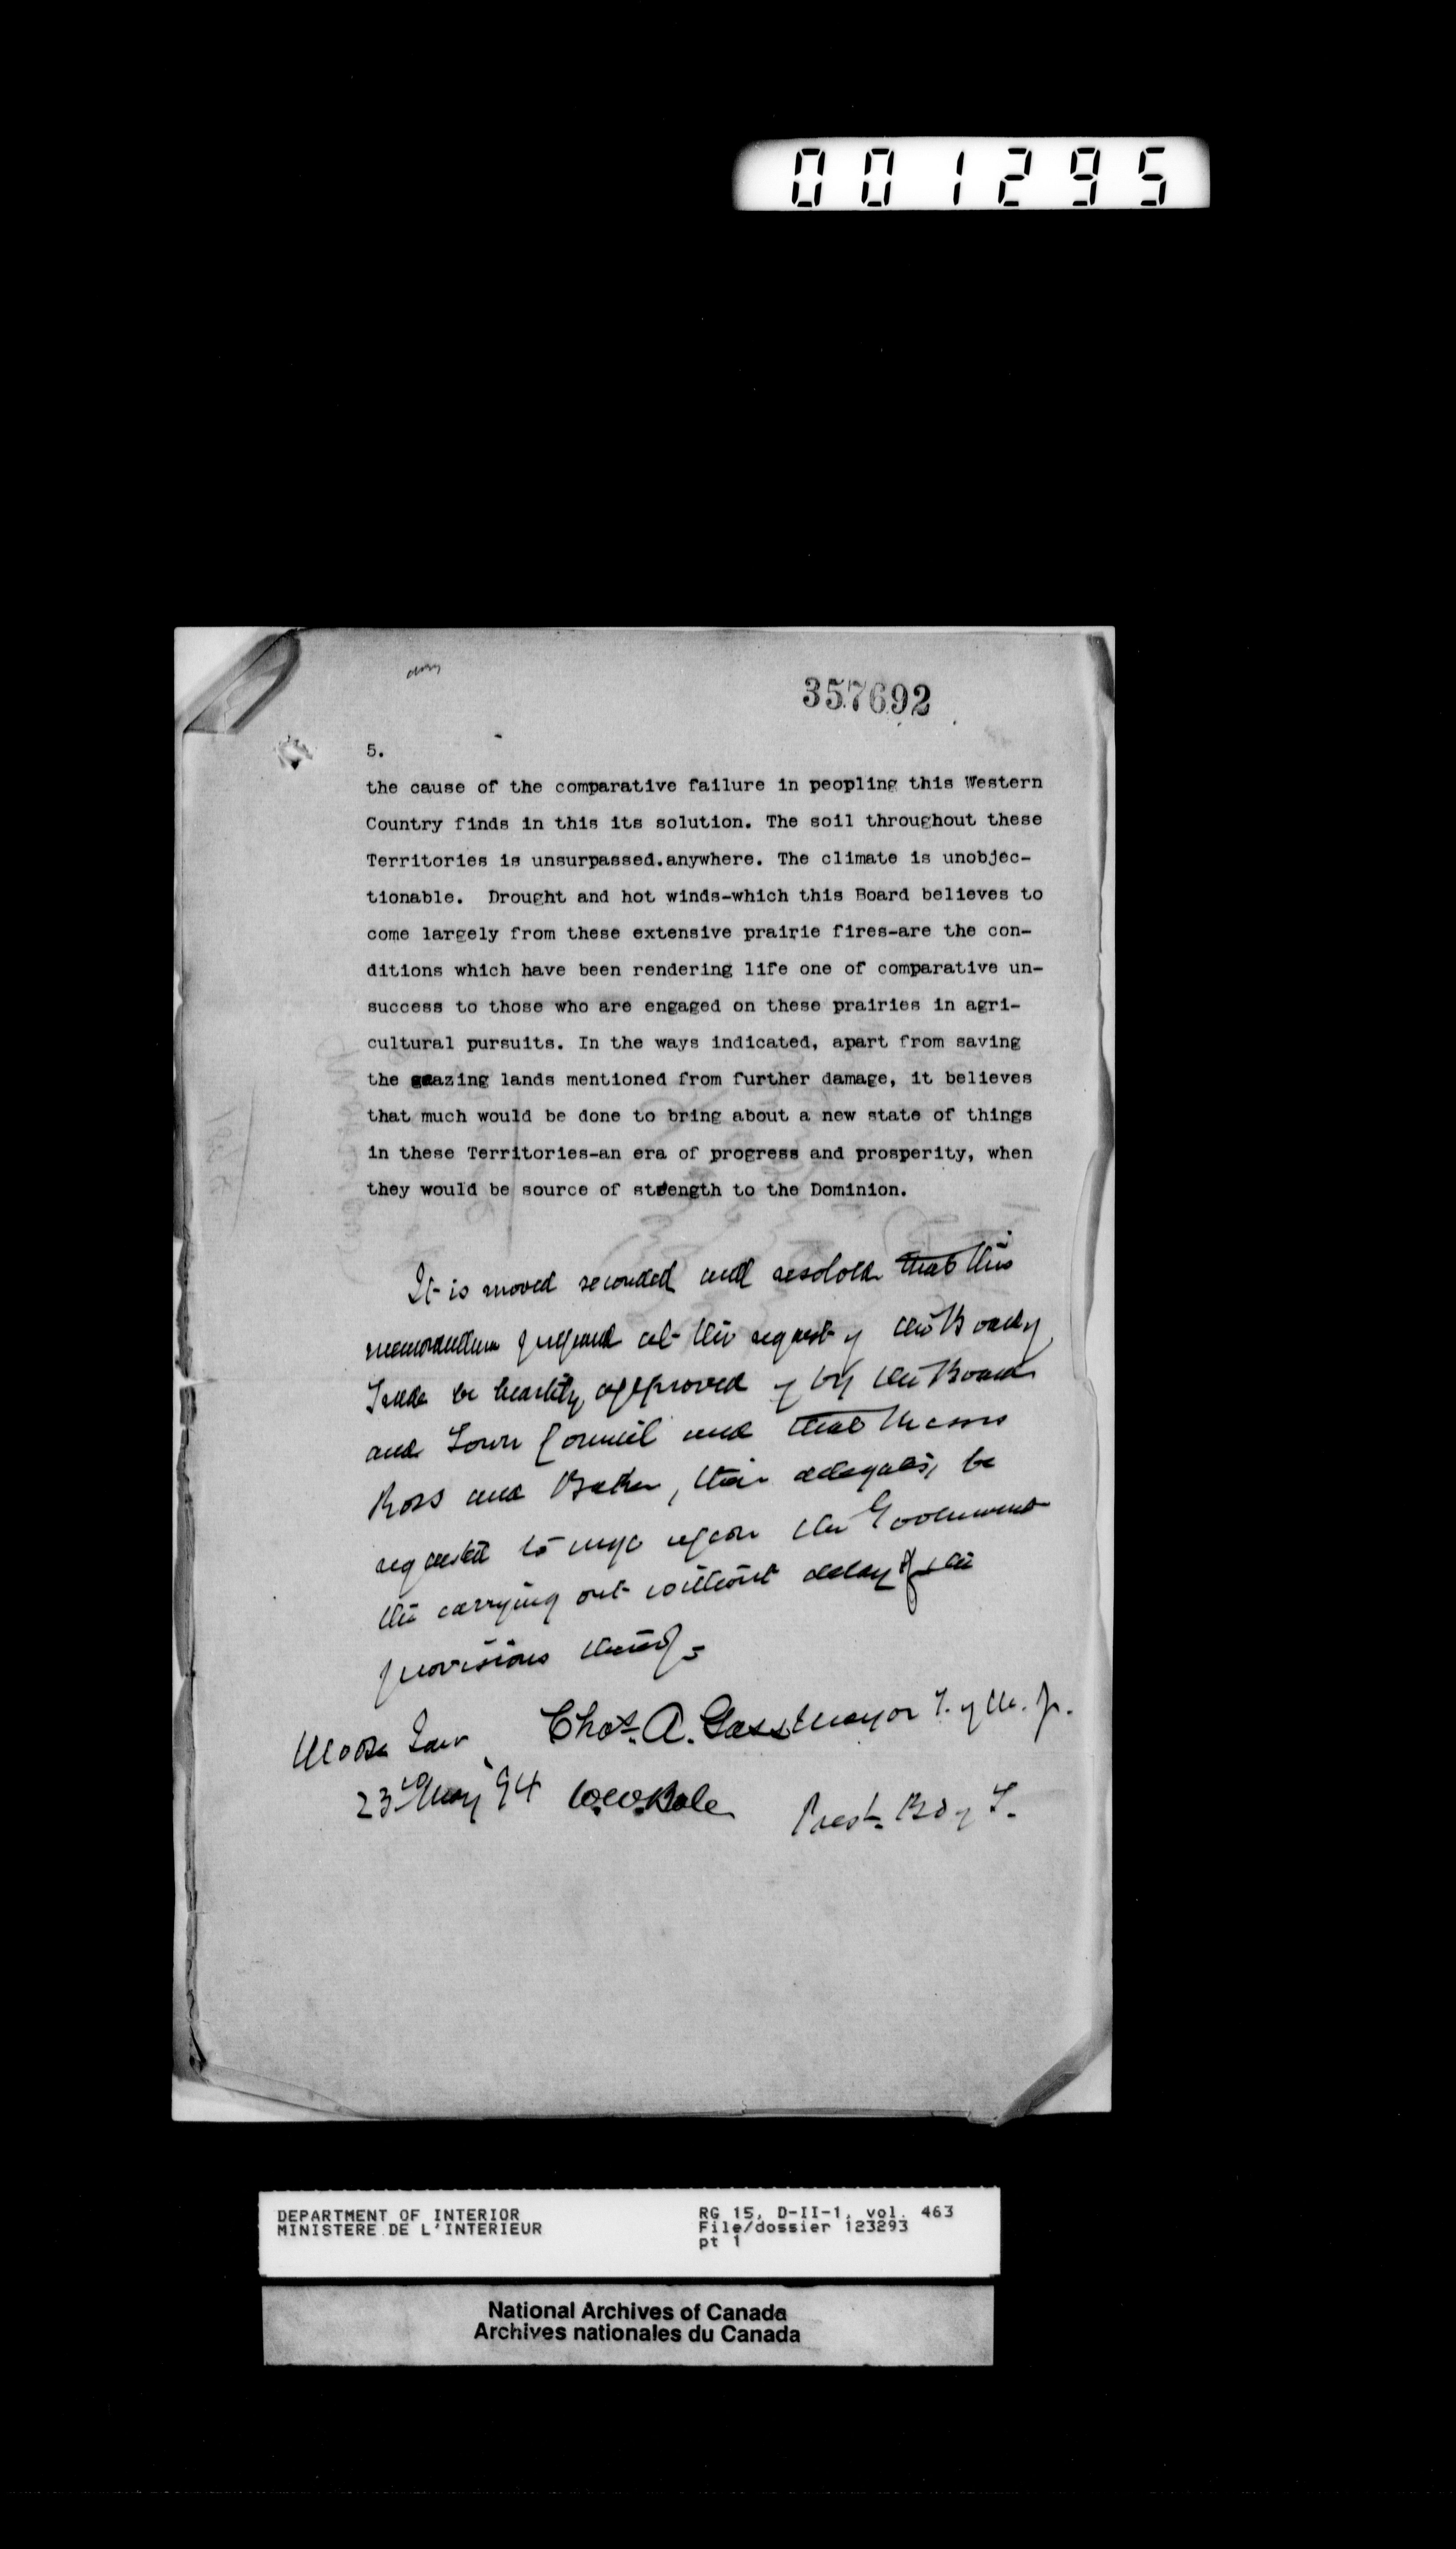 001295
357692
5.
the cause of the comparative failure in peopling this Western
Country finds in this its solution. The soil throughout these
Territories is unsurpassed.anywhere. The climate is unobjec-
tionable. Drought and hot winds-which this Board believes to
come largely from these extensive prairie fires-are the con-
ditions which have been rendering life one of comparative un-
success to those who are engaged on these prairies in agri-
cultural pursuits. In the ways indicated, apart from saving
the grazing lands mentioned from further damage, it believes
that much would be done to bring about a new state of things
in these Territories-an era of progress and prosperity, when
they would be source of strength to the Dominion.
It is moved seconded and resolved that this
memorandum prepared at the request of the Board of
Trade be heartily approved of by the Board
and Town Council and that Messrs
Ross and Baker, their delegates, be
requested to urge upon the Government
the carrying out without delay of the
provisions thereof-
Moose Jaw Chas. A. Gass Mayor T. of M. J.
23rd May '94 W.W. Bole Prest. B of T.
DEPARTMENT OF INTERIOR
MINISTERE DE L'INTERIEUR
RG 15, D-II-1, vol. 463
File/dossier 123293
pt 1
National Archives of Canada
Archives nationales du Canada